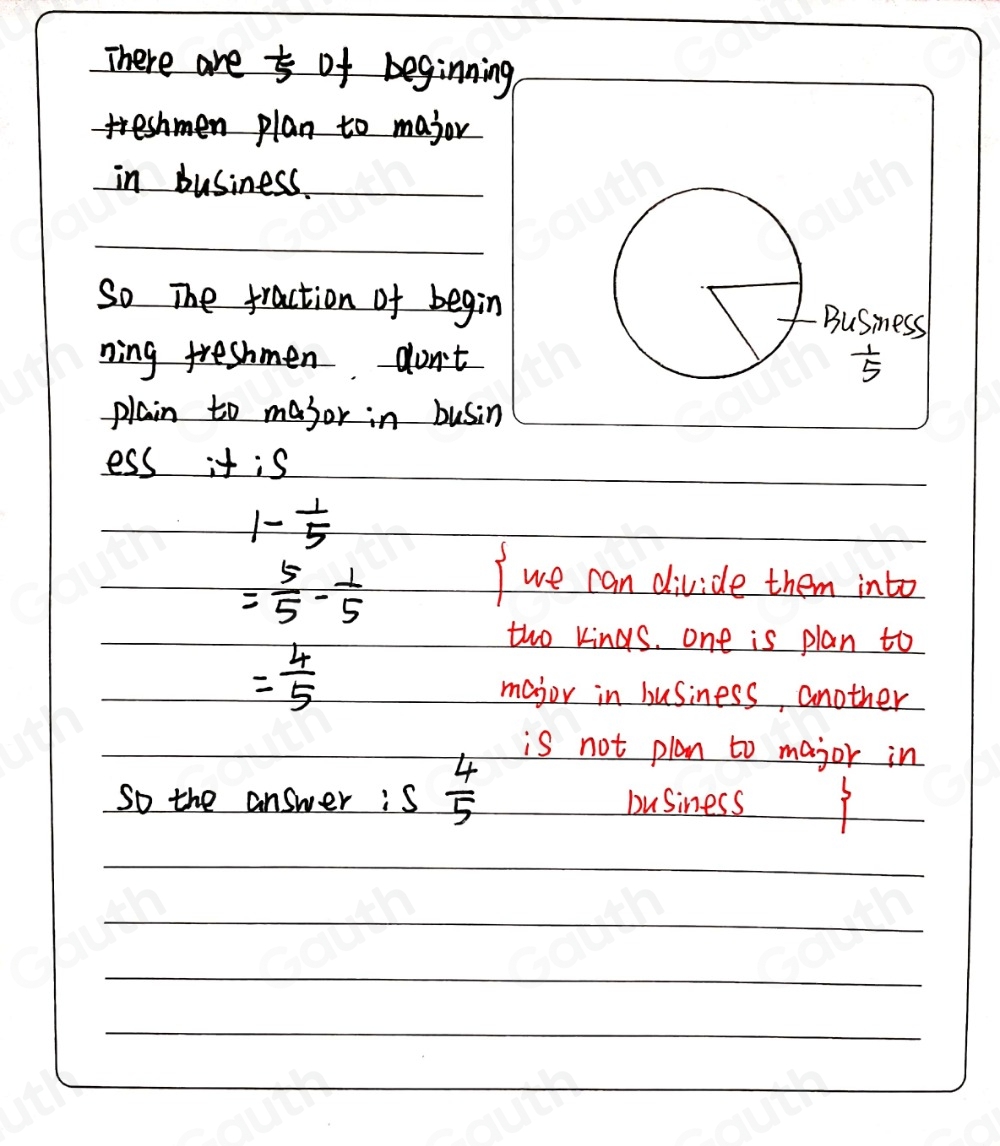 There are 1/5 of beginning
freshmen plan to major
in business.
So The fraction of begin
ning freshmen don't
plain to major in busin
ess it is
1 - 1/5
= 5/5 - 1/5
= 4/5
So the answer is 4/5
Business
1/5
{ we can divide them into
two kinds. one is plan to
major in business, another
is not plan to major in
business }
Gauth